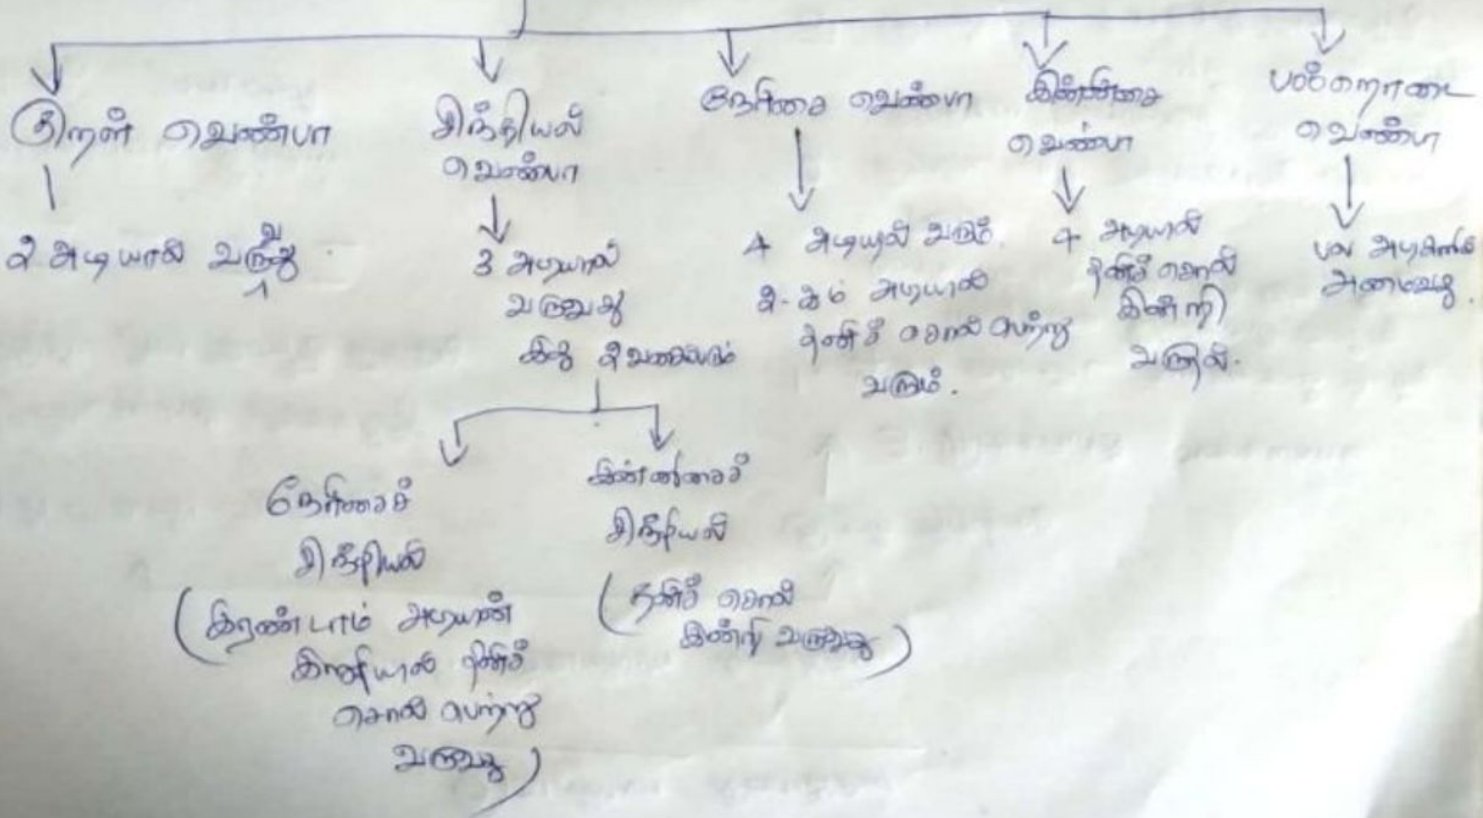 குறள் வெண்பா
2 அடியால் வருவது.
சிந்தியல்
வெண்பா
3 அடியால்
வருவது
இது 2 வகைப்படும்
நேரிசைச்
சிந்தியல்
(இரண்டாம் அடியின்
இறுதியால் தனிச்
சொல் பெற்று
வருவது)
இன்னிசைச்
சிந்தியல்
(தனிச் சொல்
இன்றி வருவது)
நேரிசை வெண்பா
4 அடியுல் வரும்.
2-ம் அடியால்
தனிச் சொல் பெற்று
வரும்.
இன்னிசை
வெண்பா
4 அடியால்
தனிச் சொல்
இன்றி
வருதல்.
பஃறொடை
வெண்பா
பல அடிகளில்
அமைவது.